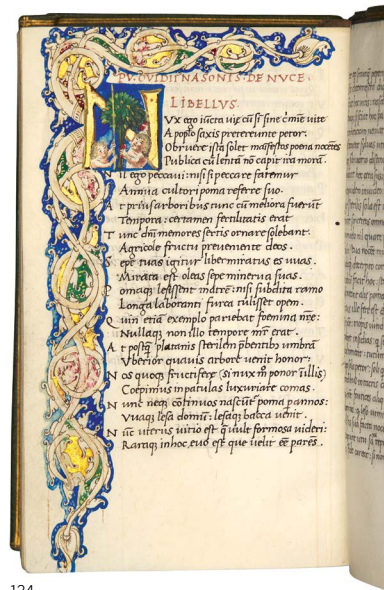 PV. OVIDII NASONIS. DE NVCE.
LIBELLVS.
VX ego iūcta vię cū sī sine c̄mīe vitę
A poplo saxis pretereunte petor:
Obruere ista solet māifestos poena nocētes
Publica cū lentā nō capit ira morā.
Nil ego peccaui: nisi si peccare fatemur
Annua cultori poma referre suo.
At prius arboribus tunc cū meliora fuerūt
Tempora: certamen fertilitatis erat
Tunc dn̄i memores sertis ornare solebant.
Agricolę fructu preueniente deos.
Sepe tuas igitur liber miratus es vuas.
Mirata est oleas sepe minerua suas.
Pomaq; lesissent matrē: nisi subdita ramo
Longa laboranti furca tulisset opem.
Quin etiā exemplo pariebat foemina n̄rē:
Nullaq; non illo tempore mr̄ erat.
At postq̄ platanis sterilem p̄bentibus umbrā
Vberior quauis arbore venit honor:
Nos quoq; fructiferę (si nux m̄ ponor ī illis)
Coepimus in patulas luxuriare comas.
Nunc neq; cōtinuos nascūt poma p annos:
Vuaq; lesa domū: lesaq; bacca venit.
Nūc uterus vitio est q̄ uult formosa videri:
Raraq; in hoc euo est quę uelit eē parēs.
124